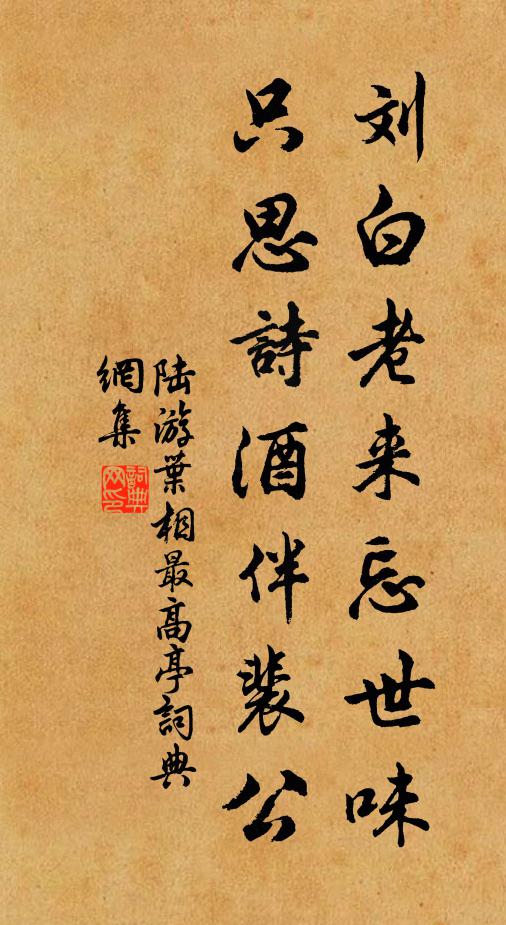 刘白老来忘世味
只思詩酒伴裴公
陆游葉相最高亭詞典
網集
詞典网印